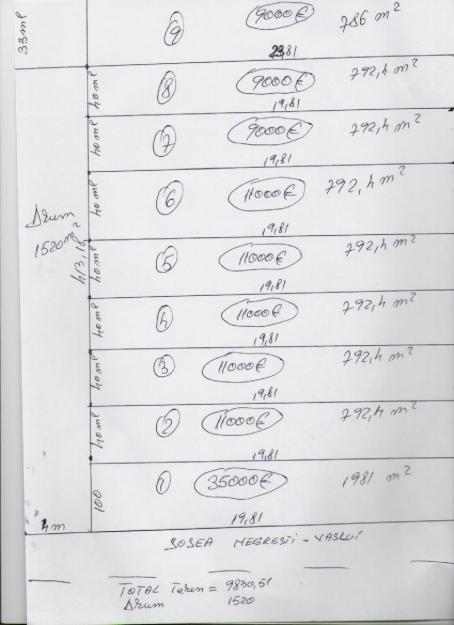 33 ml 9 9000€ 786 m²
23,81
40 ml 8 9000€ 792,4 m²
19,81
40 ml 7 9000€ 792,4 m²
19,81
40 ml 6 11000€ 792,4 m²
19,81
Drum
1520 m²
40 ml 5 11000€ 792,4 m²
19,81
4 11000€ 792,4 m²
40 ml
19,81
40 ml 3 11000€ 792,4 m²
19,81
40 ml 2 11000€ 792,4 m²
19,81
100 1 35000€ 1981 m²
4m 19,81
SOSEA NEGRESTI - VASLUI
TOTAL Teren = 9830,51
Drum 1520